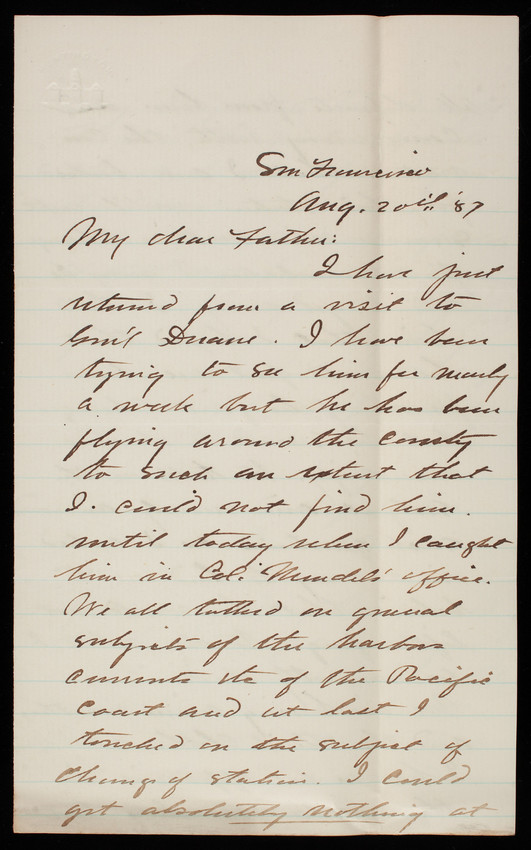 San Francisco
Aug. 20th '87
My dear Father:
I have just
returned from a visit to
Gen'l Duane. I have been
trying to see him for nearly
a week but he has been
flying around the country
to such an extent that
I could not find him
until today when I caught
him in Col. Mendel's office.
We all talked on general
subjects of the harbors
currents etc of the Pacific
coast and at last I
touched on the subject of
change of station. I could
get absolutely nothing at